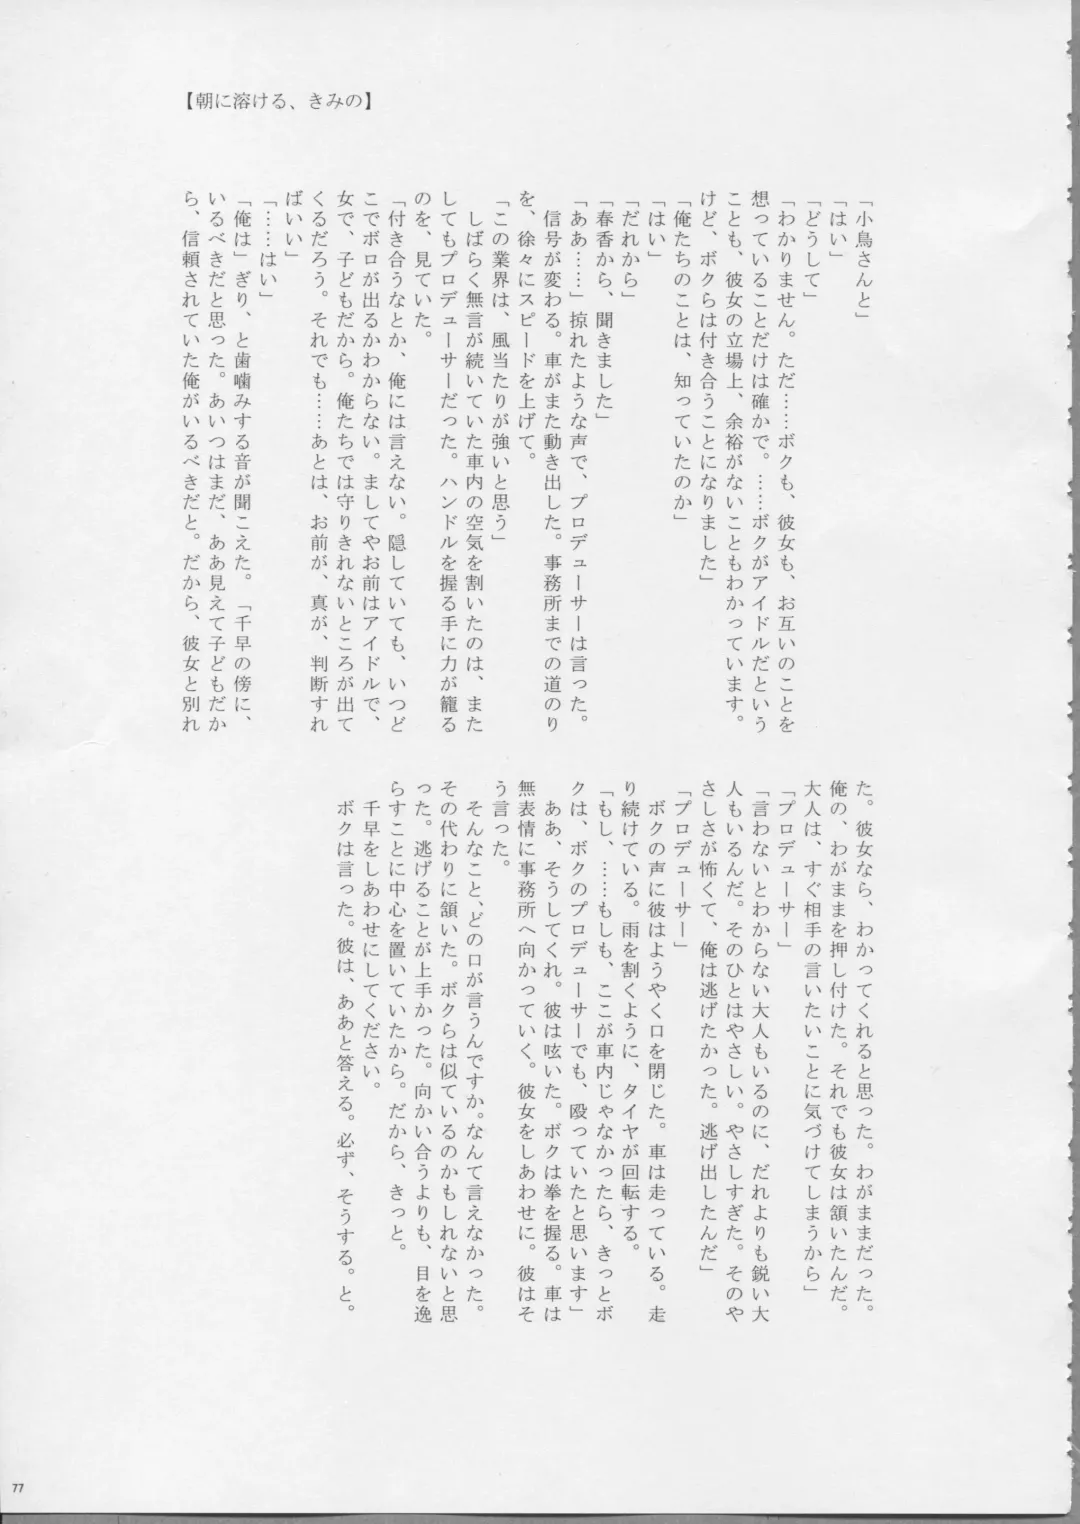 【朝に溶ける、きみの】
「小鳥さんと」
「はい」
「どうして」
「わかりません。ただ……ボクも、彼女も、お互いのことを
想っていることだけは確かで。……ボクがアイドルだという
ことも、彼女の立場上、余裕がないこともわかっています。
けど、ボクらは付き合うことになりました」
「俺たちのことは、知っていたのか」
「はい」
「だれから」
「春香から、聞きました」
「ああ……」掠れたような声で、プロデューサーは言った。
　信号が変わる。車がまた動き出した。事務所までの道のり
を、徐々にスピードを上げて。
「この業界は、風当たりが強いと思う」
　しばらく無言が続いていた車内の空気を割いたのは、また
してもプロデューサーだった。ハンドルを握る手に力が籠る
のを、見ていた。
「付き合うなとか、俺には言えない。隠していても、いつど
こでボロが出るかわからない。ましてやお前はアイドルで、
女で、子どもだから。俺たちでは守りきれないところが出て
くるだろう。それでも……あとは、お前が、真が、判断すれ
ばいい」
「……はい」
「俺は」ぎり、と歯噛みする音が聞こえた。「千早の傍に、
いるべきだと思った。あいつはまだ、ああ見えて子どもだか
ら、信頼されていた俺がいるべきだと。だから、彼女と別れ
た。彼女なら、わかってくれると思った。わがままだった。
俺の、わがままを押し付けた。それでも彼女は頷いたんだ。
大人は、すぐ相手の言いたいことに気づけてしまうから」
「プロデューサー」
「言わないとわからない大人もいるのに、だれよりも鋭い大
人もいるんだ。そのひとはやさしい。やさしすぎた。そのや
さしさが怖くて、俺は逃げたかった。逃げ出したんだ」
「プロデューサー」
　ボクの声に彼はようやく口を閉じた。車は走っている。走
り続けている。雨を割くように、タイヤが回転する。
「もし、……もしも、ここが車内じゃなかったら、きっとボ
クは、ボクのプロデューサーでも、殴っていたと思います」
　ああ、そうしてくれ。彼は呟いた。ボクは拳を握る。車は
無表情に事務所へ向かっていく。彼女をしあわせに。彼はそ
う言った。
　そんなこと、どの口が言うんですか。なんて言えなかった。
その代わりに頷いた。ボクらは似ているのかもしれないと思
った。逃げることが上手かった。向かい合うよりも、目を逸
らすことに中心を置いていたから。だから、きっと。
　千早をしあわせにしてください。
　ボクは言った。彼は、ああと答える。必ず、そうする。と。
77